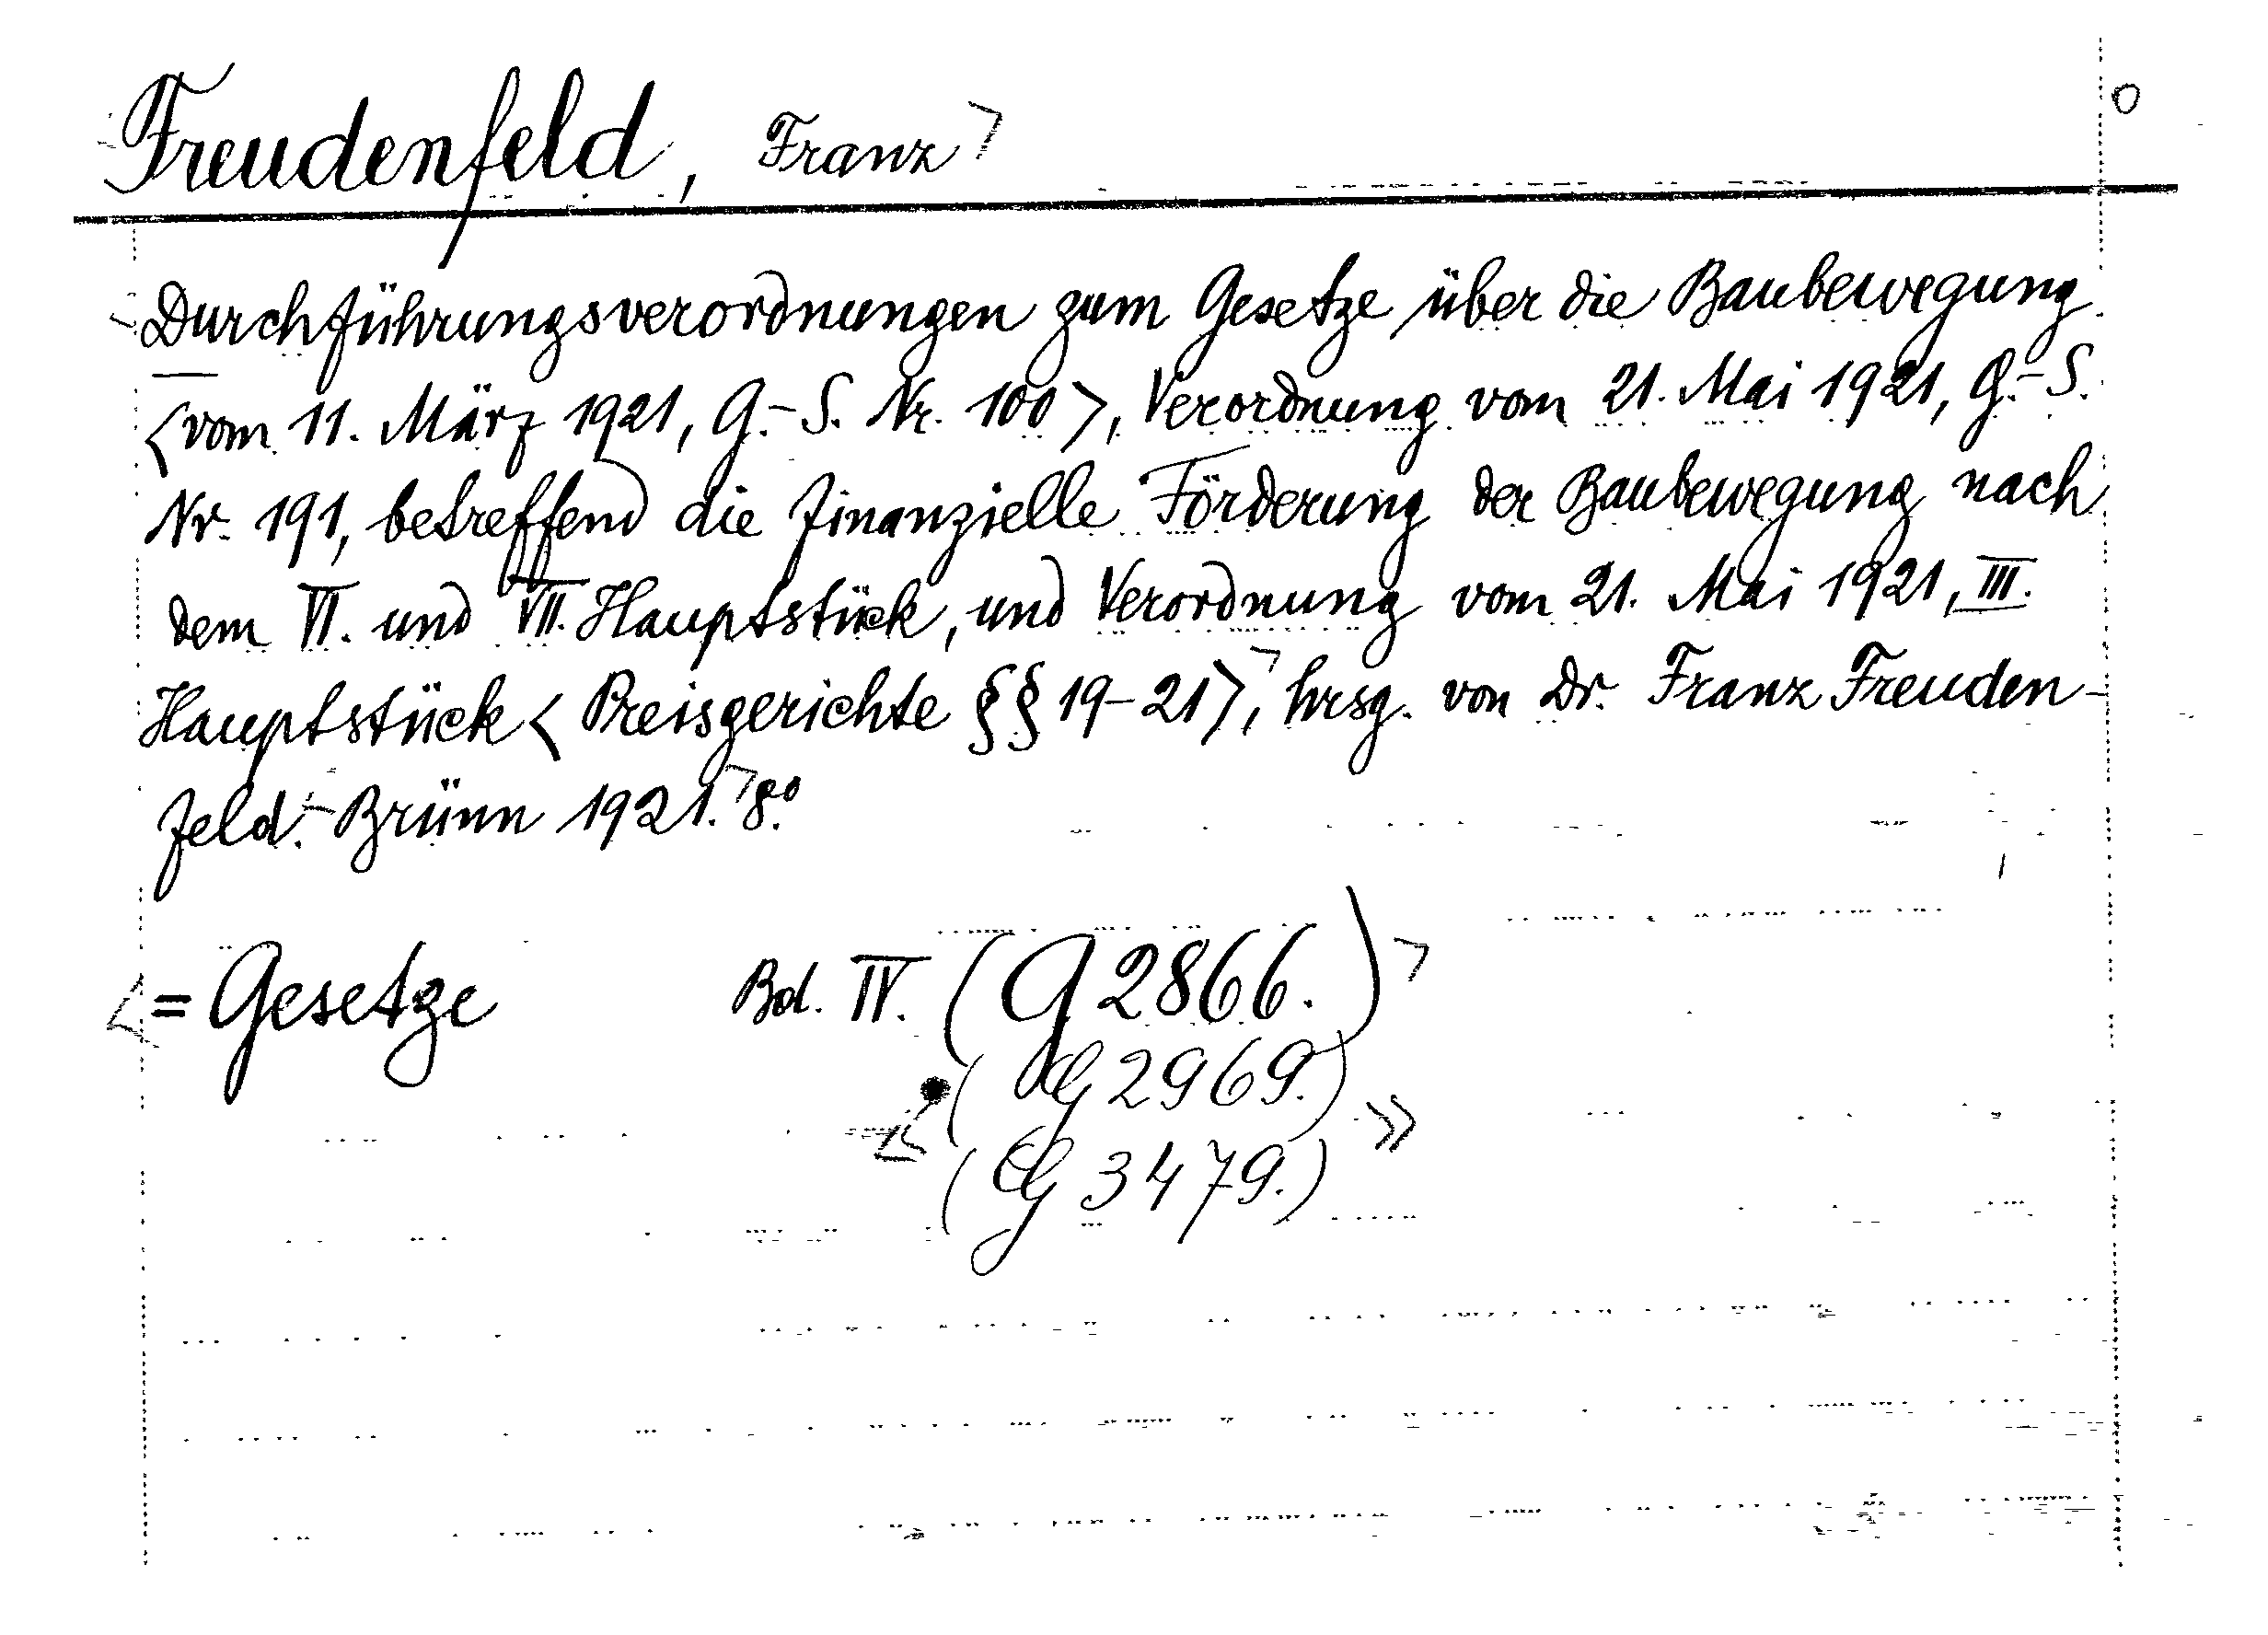 Freudenfeld, Franz
Durchführungsverordnungen zum Gesetze über die Baubewegung
<vom 11. März 1921, G.-S. Nr. 100>, Verordnung vom 21. Mai 1921, G.-S.
Nr. 191, betreffend die finanzielle Förderung der Baubewegung nach
dem VI. und VII. Hauptstück, und Verordnung vom 21. Mai 1921, III.
Hauptstück <Preisgerichte §§ 19-21>, hrsg. von Dr. Franz Freuden-
feld. - Brünn 1921. 8°.
= Gesetze Bd. IV. (G 2866.)
(G 2969.)
(G 3479.)